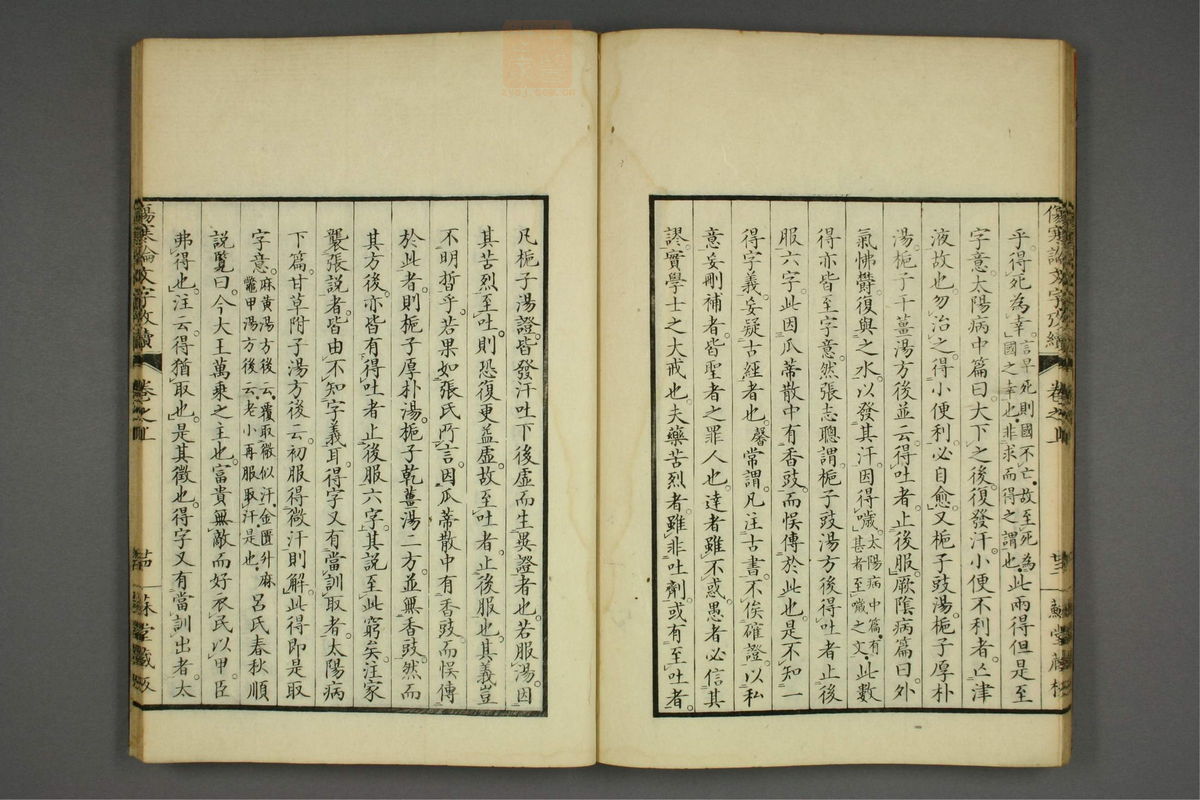 傷寒論文字攷續 卷之上 廿三 蘇堂藏板
乎得死為幸言早死則國不亡故至死為國之幸也非求而得之謂也此兩得但是至
字意太陽病中篇曰大下之後復發汗小便不利者亡津
液故也勿治之得小便利必自愈又梔子豉湯梔子厚朴
湯梔子干薑湯方後並云得吐者止後服厥陰病篇曰外
氣怫鬱復與之水以發其汗因得噦太陽病中篇有甚者至噦之文此數
得亦皆至字意然張志聰謂梔子豉湯方後得吐者止後
服六字此因瓜蒂散中有香豉而悞傳於此也是不知一
得字義妄疑古經者也馨常謂凡注古書不俟確證以私
意妄刪補者皆聖者之罪人也達者雖不惑愚者必信其
謬實學士之大戒也夫藥苦烈者雖非吐劑或有至吐者
凡梔子湯證皆發汗吐下後虛而生異證者也若服湯因
其苦烈至吐則恐復更益虛故至吐者止後服也其義豈
不明晢乎若果如張氏所言因瓜蒂散中有香豉而悞傳
於此者則梔子厚朴湯梔子乾薑湯二方並無香豉然而
其方後亦皆有得吐者止後服六字其說至此窮矣注家
襲張說者皆由不知字義耳得字又有當訓取者太陽病
下篇甘草附子湯方後云初服得微汗則解此得即是取
字意麻黃湯方後云覆取微似汗金匱升麻鼈甲湯方後云老小再服取汗是也呂氏春秋順
說覽曰今大王萬乘之主也富貴無敵而好衣民以甲臣
弗得也注云得猶取也是其徵也得字又有當訓出者太
傷寒論文字攷續 卷之上 廿四 蘇堂藏板